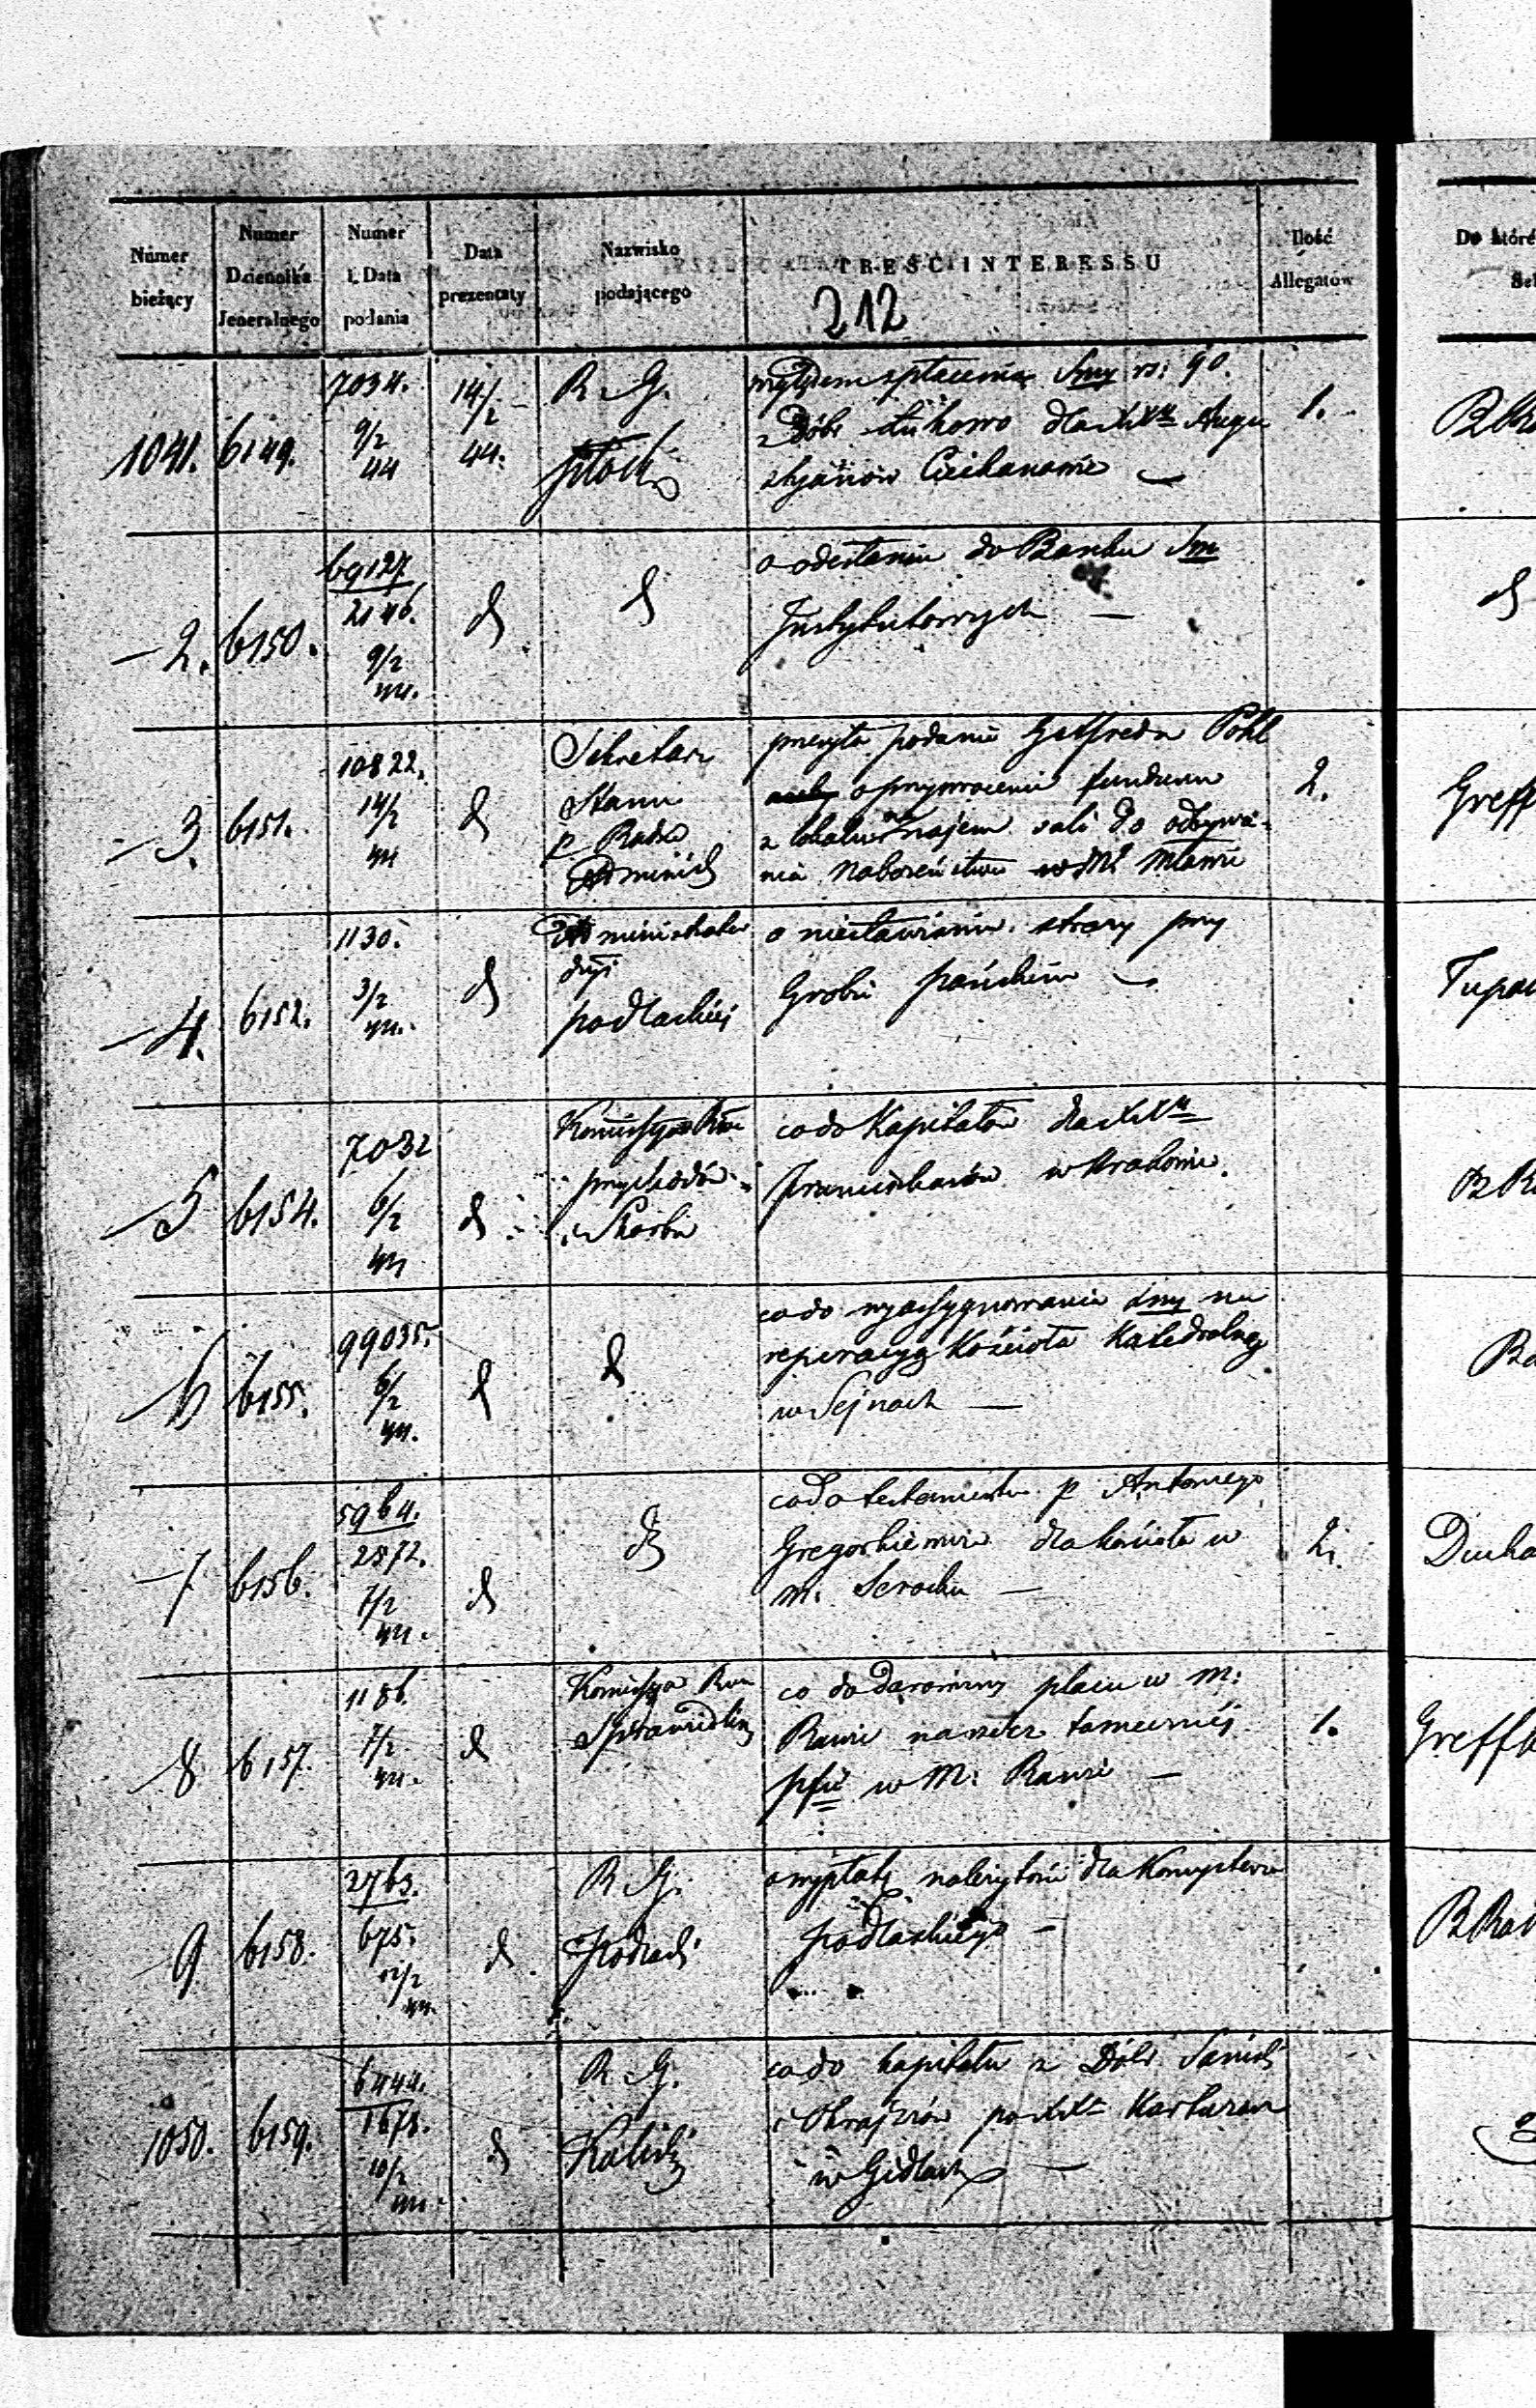 Numer bieżący
Numer Dziennika Jeneralnego
Numer i Data podania
Data prezentaty
Nazwisko podającego
TREŚĆ INTERESSU
Ilość Allegatów
Do któré
212
1041. 6149. 7034. 9/2 44 14/2 44. R. G. Płocki
względem spłacenia Smy rs: 90.
z Dóbr Łukowo dla XX Augu
styanów Ciechanowie —
1.
2. 6150. 69127 2146. 9/2 44. d d
o odesłaniu do Banku Sm
Instytutowych —
d
3. 6151. 10822. 14/2 44 d
Sekretarz
Stanu
p. Radca
przesyła podanie Gottfreda Pohl
o przywrócenie funduszu
z lokalu najem sali do odbywa-
nia Nabożeństwa w M. Mławie
2.
Greff
4. 6152. 1130. 3/2 44. d
Administrator
dyi
podlaskiéj
o niestawianiu straży przy
Grobie pańskim —
5 6154. 7032 6/2 44 d
Komissya Rzą
przychodów
i Skarbu
co do Kapitałów dla XX
Franciszkanów w Krakowie.
6 6155. 99035. 6/2 44. d d
co do wyasygnowania smy na
reperacyą Kościoła Katedralneg
w Sejnach —
7 6156. 5964. 2572. 7/2 44. d d
co do testamentu p Antoniego
Gregorkiewicza dla kościoła w
m. Serocku —
2.
8 6157. 1186. 7/2 44. d
Komissya Rzą
Sprawiedliw
co do darowizny placu w M:
Rawie na rzecz tamecznéj
pfii w M: Rawie —
1.
9 6158. 2763. 675. 12/2 44. d
R. G.
Podlaski
o wypłatę należytości dla Konsystorza
podlaskiego —
1050. 6159. 6444. 1678. 10/2 44. d
R. G.
Kaliski
co do kapitału z Dóbr
po XX Kartuzach
w Gidlach —